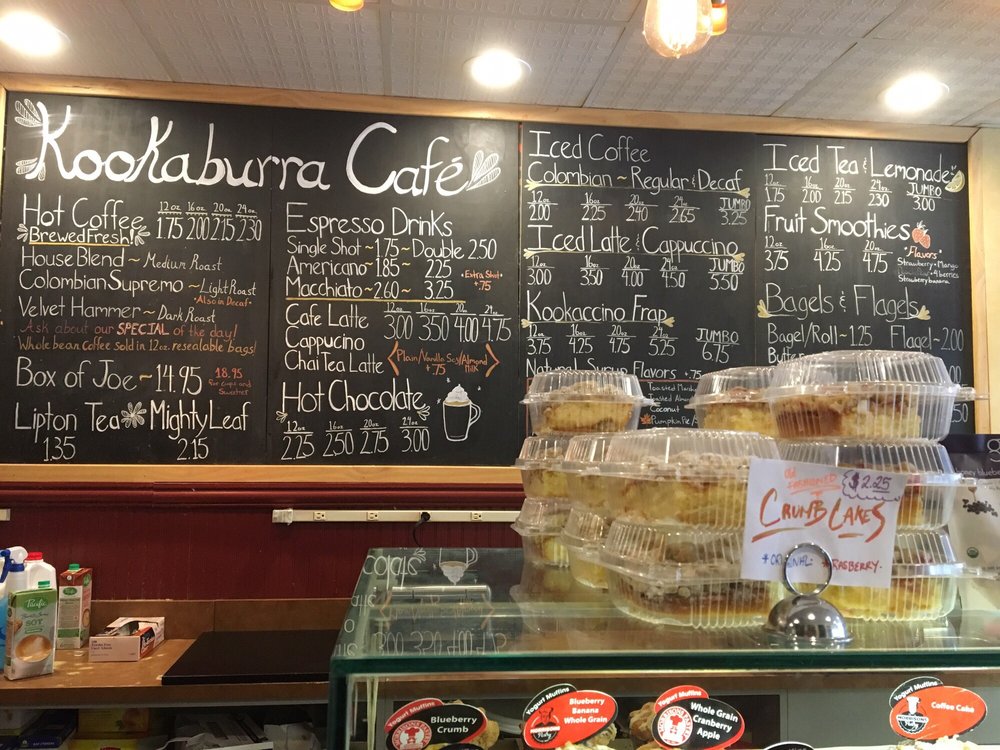 Kookaburra Café
Hot Coffee
12oz 16oz 20oz 24oz
1.75 2.00 2.15 2.30
Brewed Fresh!
House Blend ~ Medium Roast
Colombian Supremo ~ Light Roast
• Also in Decaf •
Velvet Hammer ~ Dark Roast
Ask about our SPECIAL of the day!
Whole bean Coffee Sold in 12oz. resealable bags!
Box of Joe ~ 14.95
18.95
For cups and
Sweetner
Lipton Tea Mighty Leaf
1.35 2.15
Espresso Drinks
Single Shot ~ 1.75 ~ Double 2.50
Americano ~ 1.85 ~ 2.25
Macchiato ~ 2.60 ~ 3.25
• Extra Shot •
+.75
Cafe Latte
12oz 16oz 20oz 24oz
3.00 3.50 4.00 4.75
Cappucino
Chai Tea Latte
Plain/Vanilla Soy/Almond
+.75 Milk
Hot Chocolate
12oz 16oz 20oz 24oz
2.25 2.50 2.75 3.00
Iced Coffee
Colombian ~ Regular & Decaf
12oz 16oz 20oz 24oz JUMBO
2.00 2.25 2.40 2.65 3.25
Iced Latte & Cappuccino
12oz 16oz 20oz 24oz JUMBO
3.00 3.50 4.00 4.50 5.50
Kookaccino Frap
12oz 16oz 20oz 24oz JUMBO
3.75 4.25 4.75 5.25 6.75
Natural Syrup Flavors +.75
Toasted
Toasted Almond
Coconut
Pumpkin Pie
Iced Tea & Lemonade
12oz 16oz 20oz 24oz JUMBO
1.75 2.00 2.15 2.30 3.00
Fruit Smoothies
12oz 16oz 20oz
3.75 4.25 4.75
• Flavors •
Strawberry • Mango
4 berries
Strawberry banana
Bagels & Flagels
Bagel/Roll ~ 1.25 Flagel ~ 2.00
Butter
.50
Old
FASHIONED
$2.25
CRUMB CAKES
* ORIGINAL. * RASBERRY.
Pacific
SOY
Yogurt Muffins
Blueberry
Crumb
Yogurt Muffins
Blueberry
Banana
Whole Grain
Yogurt Muffins
Whole Grain
Cranberry
Apple
Yogurt Muffins
Coffee Cake